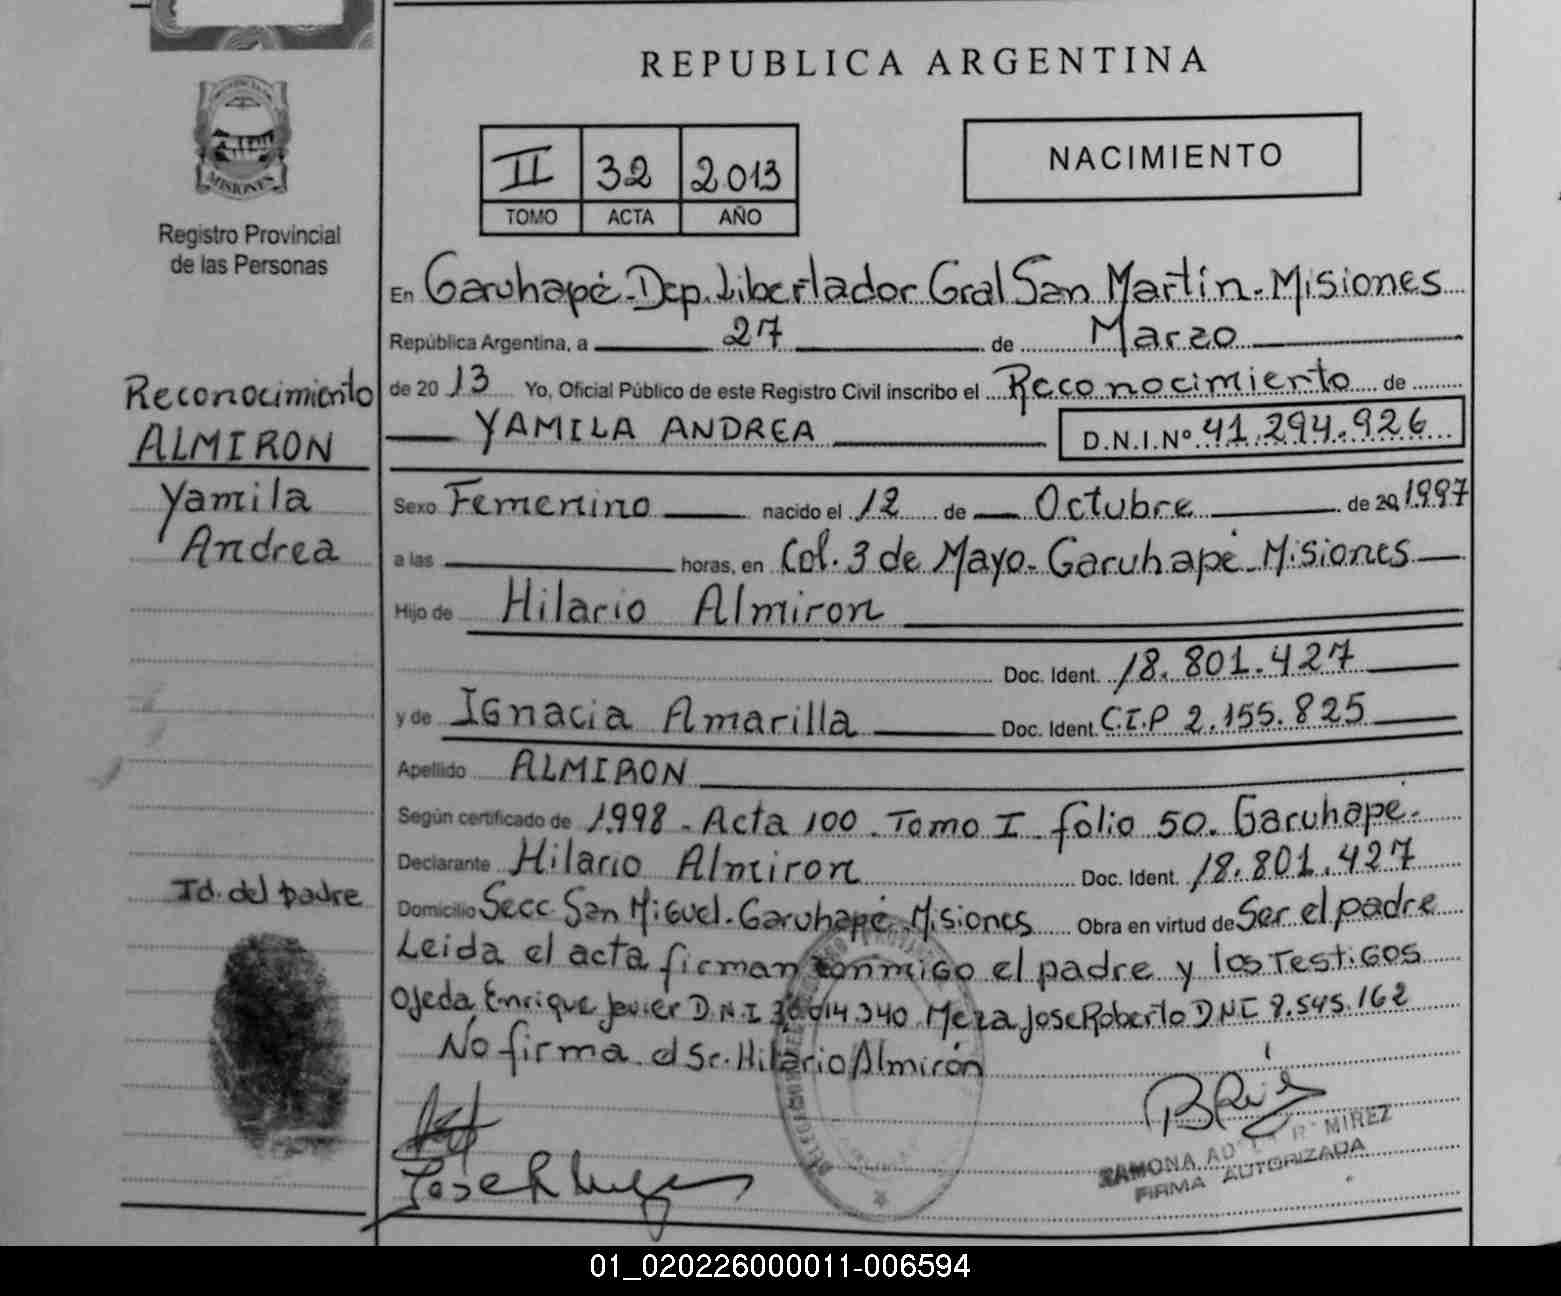 REPUBLICA ARGENTINA
II 32 2013
TOMO ACTA AÑO
NACIMIENTO
MISIONES
Registro Provincial
de las Personas
En Garuhapé-Dep. Libertador Gral San Martín-Misiones
República Argentina, a 27 de Marzo
de 2013 Yo, Oficial Público de este Registro Civil inscribo el Reconocimiento de
YAMILA ANDREA D.N.I.Nº 41.294.926
Reconocimiento
ALMIRON
Yamila
Andrea
Sexo Femenino nacido el 12 de Octubre de 20 1997
a las horas, en Col. 3 de Mayo-Garuhapé-Misiones
Hijo de Hilario Almiron
Doc. Ident. 18.801.427
y de Ignacia Amarilla Doc. Ident. C.I.P 2.155.825
Apellido ALMIRON
Según certificado de 1998 - Acta 100. Tomo I folio 50. Garuhapé-
Declarante Hilario Almiron Doc. Ident. 18.801.427
Domicilio Secc San Miguel-Garuhapé Misiones Obra en virtud de Ser el padre
Leida el acta firman conmigo el padre y los Testigos
Ojeda, Enrique Javier D.N.I Meza Jose Roberto DNI 8.545.162
No firma el Sr. Hilario Almirón
Id. del padre
RAMONA RAMIREZ
FIRMA AUTORIZADA
01_020226000011-006594